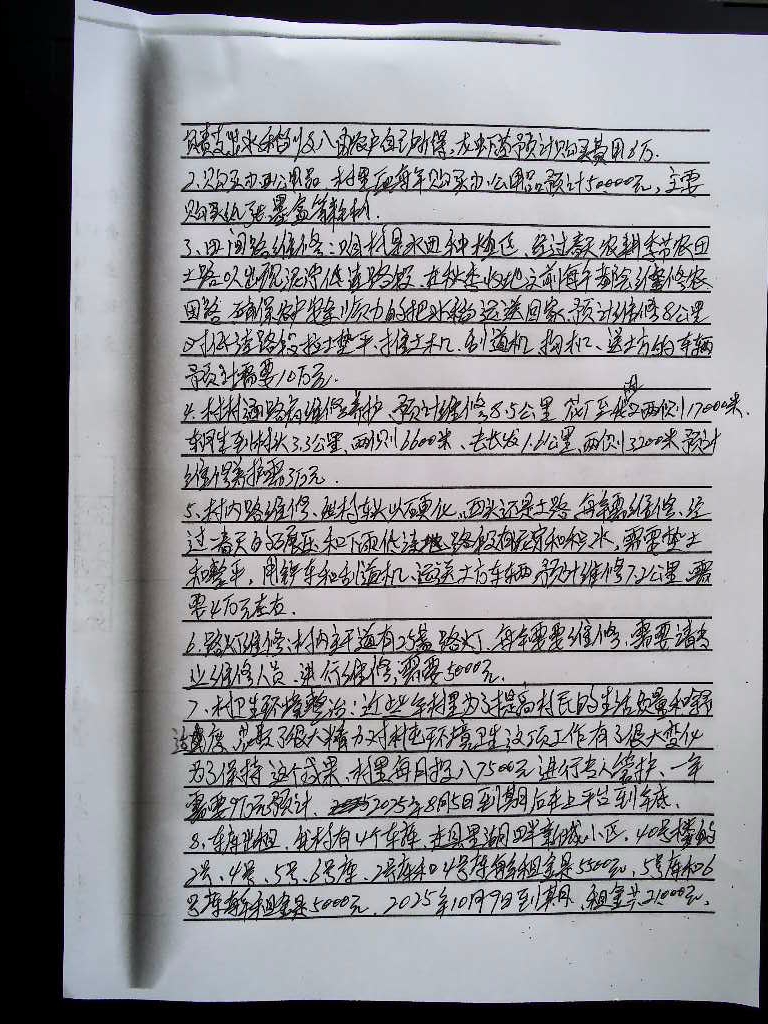 费支出水稻以及八由农户自己承担,尤其下苗预计购买费用3万.
2.购买办公用品 村里在每年购买办公用品预计50000元,主要
购买纸张墨盒等耗材.
3.田间路维修:咱村是水田种植区,经过春天农耕季节农田
土路以出现泥泞低洼路段,在秋季收地之前每年都给维修农
田路,确保农户安全顺力的把水稻运送回家,预计维修8公里
对低洼路段拉土垫平,推土机、刮道机、构机、送土方的车辆
预计需要10万元.
4.村村通路肩维修养护,预计维修8.5公里 两侧17000米.
到村头3.3公里,两侧6600米、去长发1.6公里,两侧3200米 预计
维修养护需3万元.
5.村内路维修、我村东头以硬化,西头还是土路,每年需维修、经
过春天的碾压和下雨低洼地路段有泥泞和积水,需要垫土
和整平,用铲车和刮道机、运送土方车辆 预计维修7.2公里,需
要4万元左右.
6.路灯维修:村内主干道有25盏路灯,每年需要维修,需要请专
业维修人员,进行维修,需要5000元.
7.村卫生环境整治:近些年村里为了提高村民的生活质量和舒
适度,采取了很大精力对村屯环境卫生这项工作有了很大变化
为了保持这个成果,村里每月投入7500元进行专人管护、一年
需要9万元预计,2025年8月5日到期后在上平台到年底.
8.车库出租,我村有4个车库,在县里湖畔新城小区,40号楼的
2号、4号、5号、6号库、2号库和4号库每年租金是5500元,5号库和6
号库每年租金是5000元,2025年10月9日到期,租金共21000元.